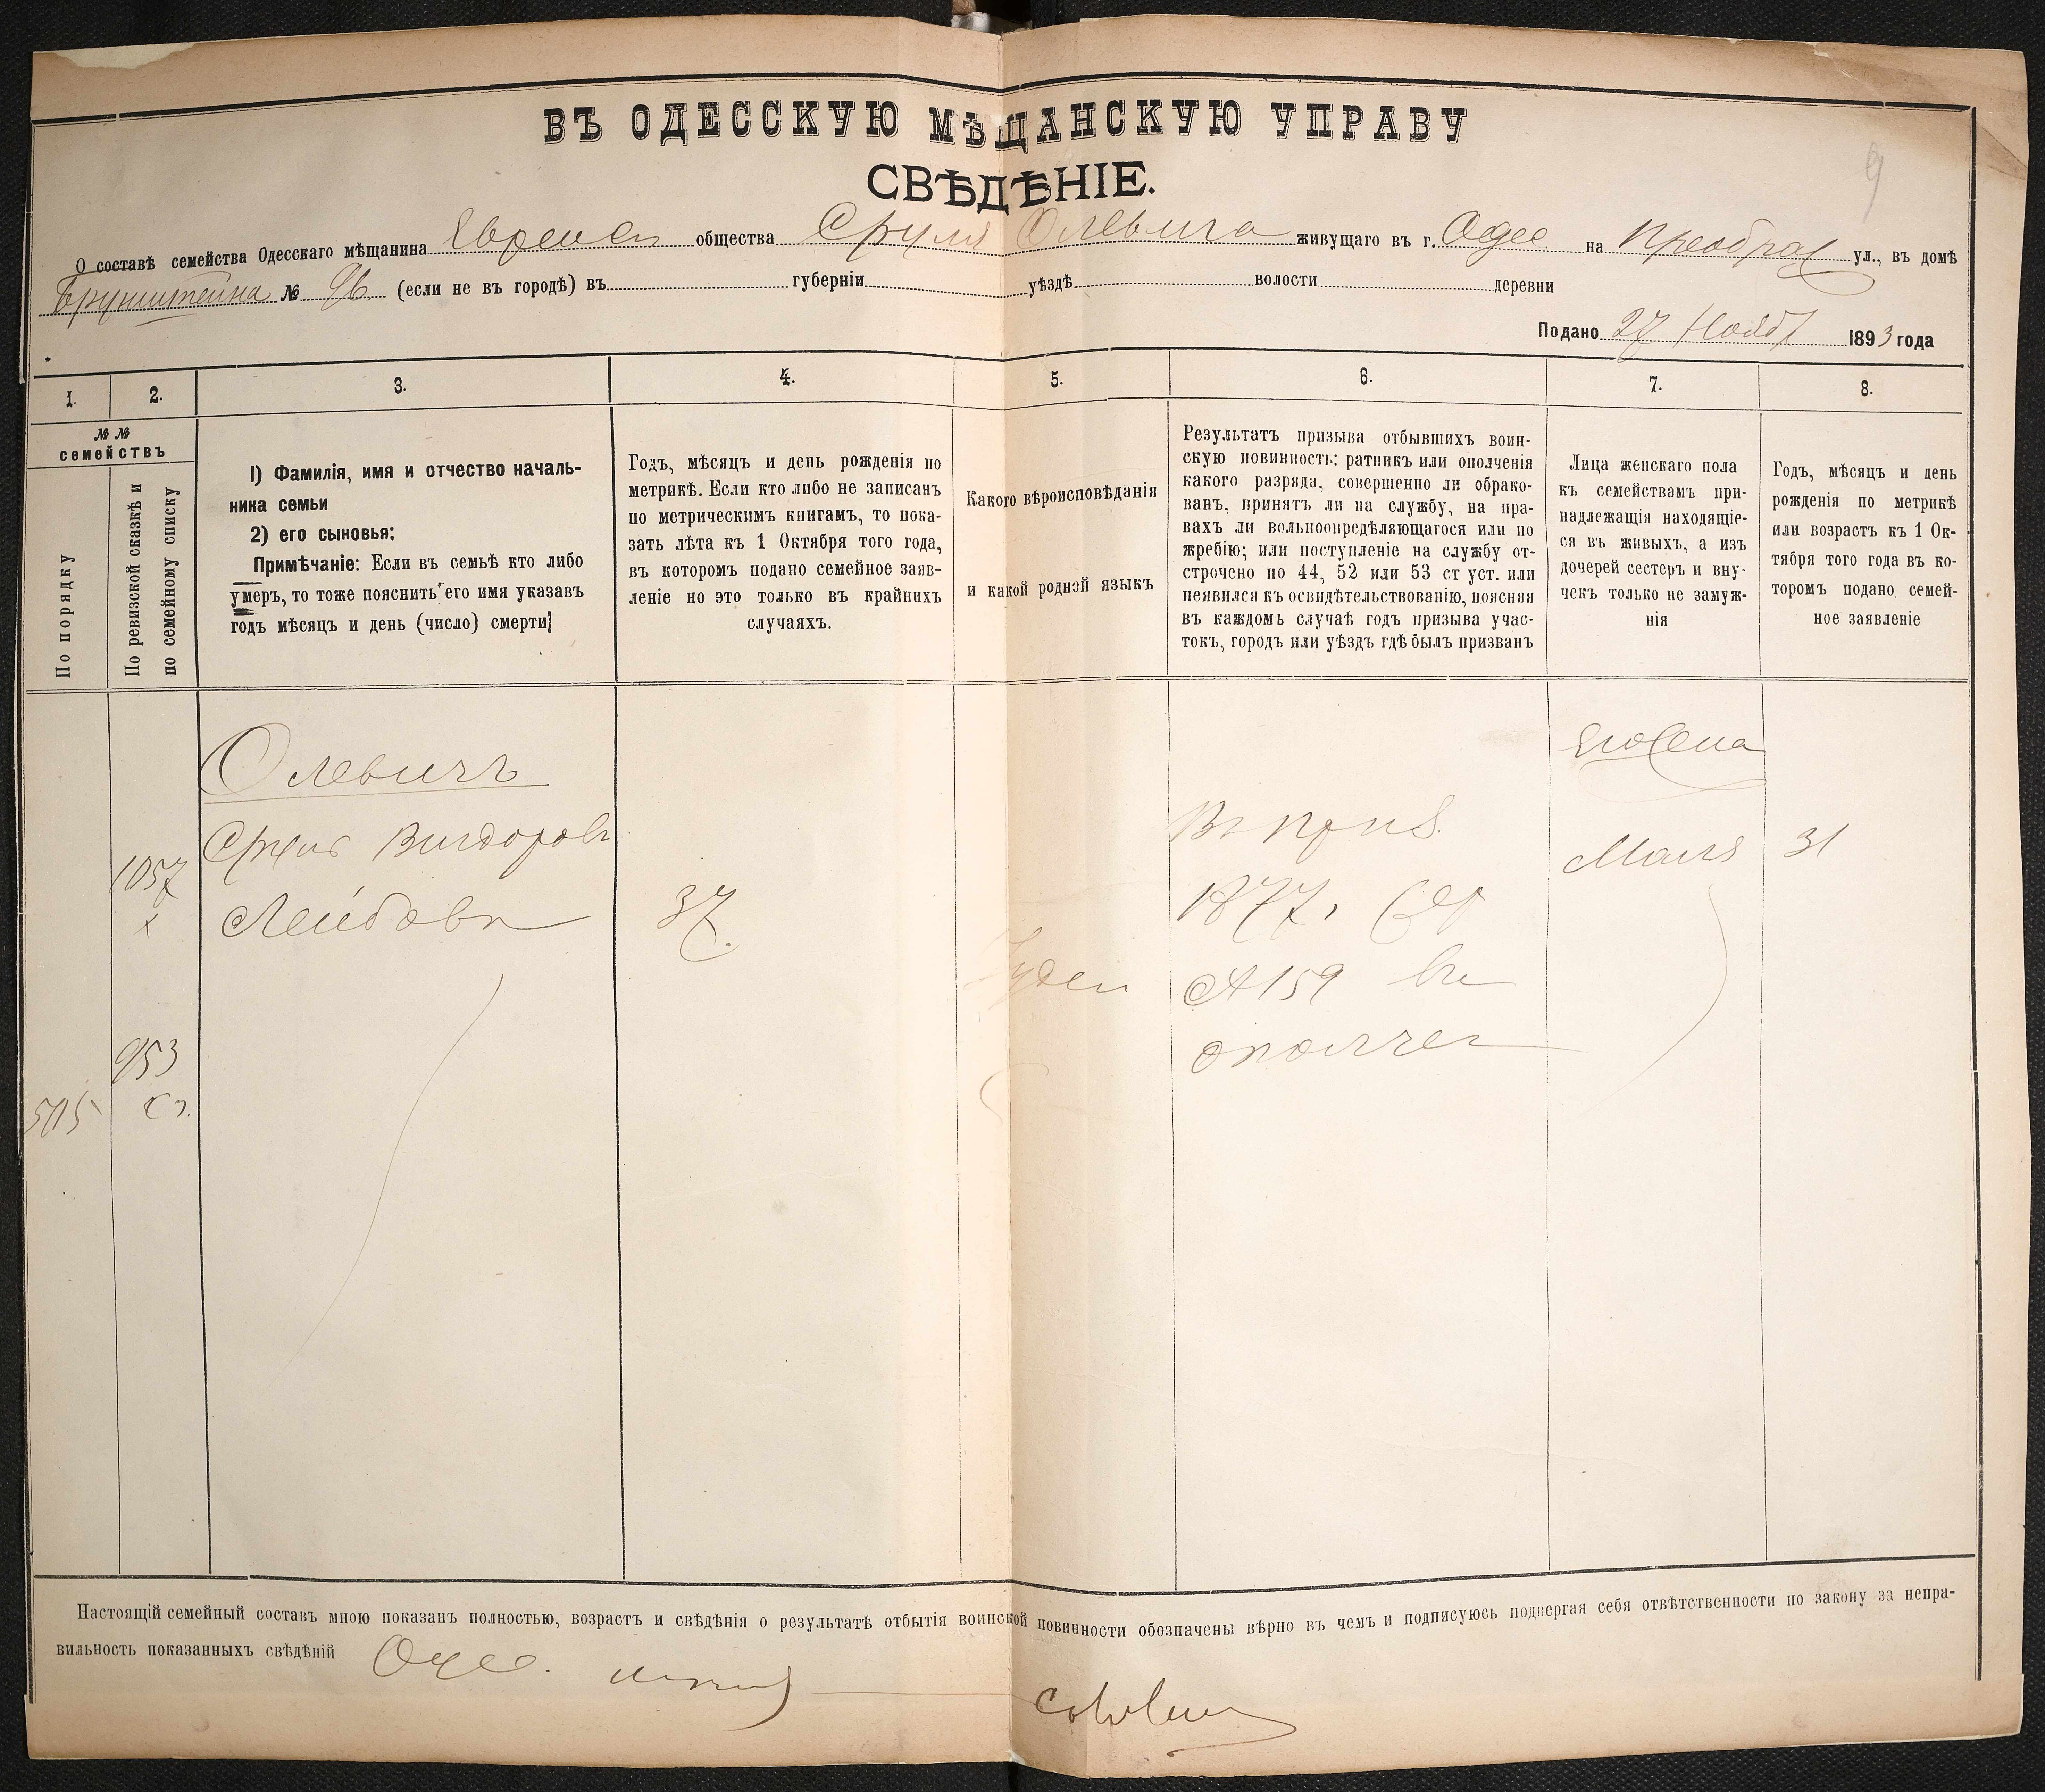 9
ВЪ ОДЕССКУЮ МѢЩАНСКУЮ УПРАВУ
СВѢДѢНІЕ.
О составѣ семейства Одесскаго мѣщанина Евреск общества Сруля Олевича живущаго въ г. Одес на Преображ ул., въ домѣ
Брунштейна № 96 (если не въ городѣ) въ губерніи уѣздѣ волости деревни
Подано 27 Нояб 1893 года
1. 2. 3. 4. 5. 6. 7. 8.
№ №
семействъ
По порядку
По ревизской сказкѣ и
по семейному списку
1) Фамилія, имя и отчество началь-
ника семьи
2) его сыновья:
Примѣчаніе: Если въ семьѣ кто либо
умеръ, то тоже пояснить его имя указавъ
годъ мѣсяцъ и день (число) смерти;
Годъ, мѣсяцъ и день рожденія по
метрикѣ. Если кто либо не записанъ
по метрическимъ книгамъ, то пока-
зать лѣта къ 1 Октября того года,
въ которомъ подано семейное заяв-
леніе но это только въ крайнихъ
случаяхъ.
Какого вѣроисповѣданія
и какой родной языкъ
Результатъ призыва отбывшихъ воин-
скую повинность: ратникъ или ополченія
какого разряда, совершенно ли обрако-
ванъ, принятъ ли на службу, на пра-
вахъ ли вольноопредѣляющагося или по
жребію; или поступленіе на службу от-
строчено по 44, 52 или 53 ст уст. или
неявился къ освидѣтельствованію, поясняя
въ каждомъ случаѣ годъ призыва учас-
токъ, городъ или уѣздъ гдѣ былъ призванъ
Лица женскаго пола
къ семействамъ при-
надлежащія находящіе-
ся въ живыхъ, а изъ
дочерей сестеръ и вну-
чекъ только не замуж-
нія
Годъ, мѣсяцъ и день
рожденія по метрикѣ
или возрастъ къ 1 Ок-
тября того года въ ко-
торомъ подано семей-
ное заявленіе
Олевичъ
Сруль Вигдоровъ
Лейбовъ
1057
953
37
Іудей
Въ приз.
1877
№ 159 въ
ополчен
Его жена
Маля 31
Настоящій семейный составъ мною показанъ полностью, возрастъ и свѣдѣнія о результатѣ отбытія воинской повинности обозначены вѣрно въ чемъ и подписуюсь подвергая себя отвѣтственности по закону за непра-
вильность показанныхъ свѣдѣній Одес.